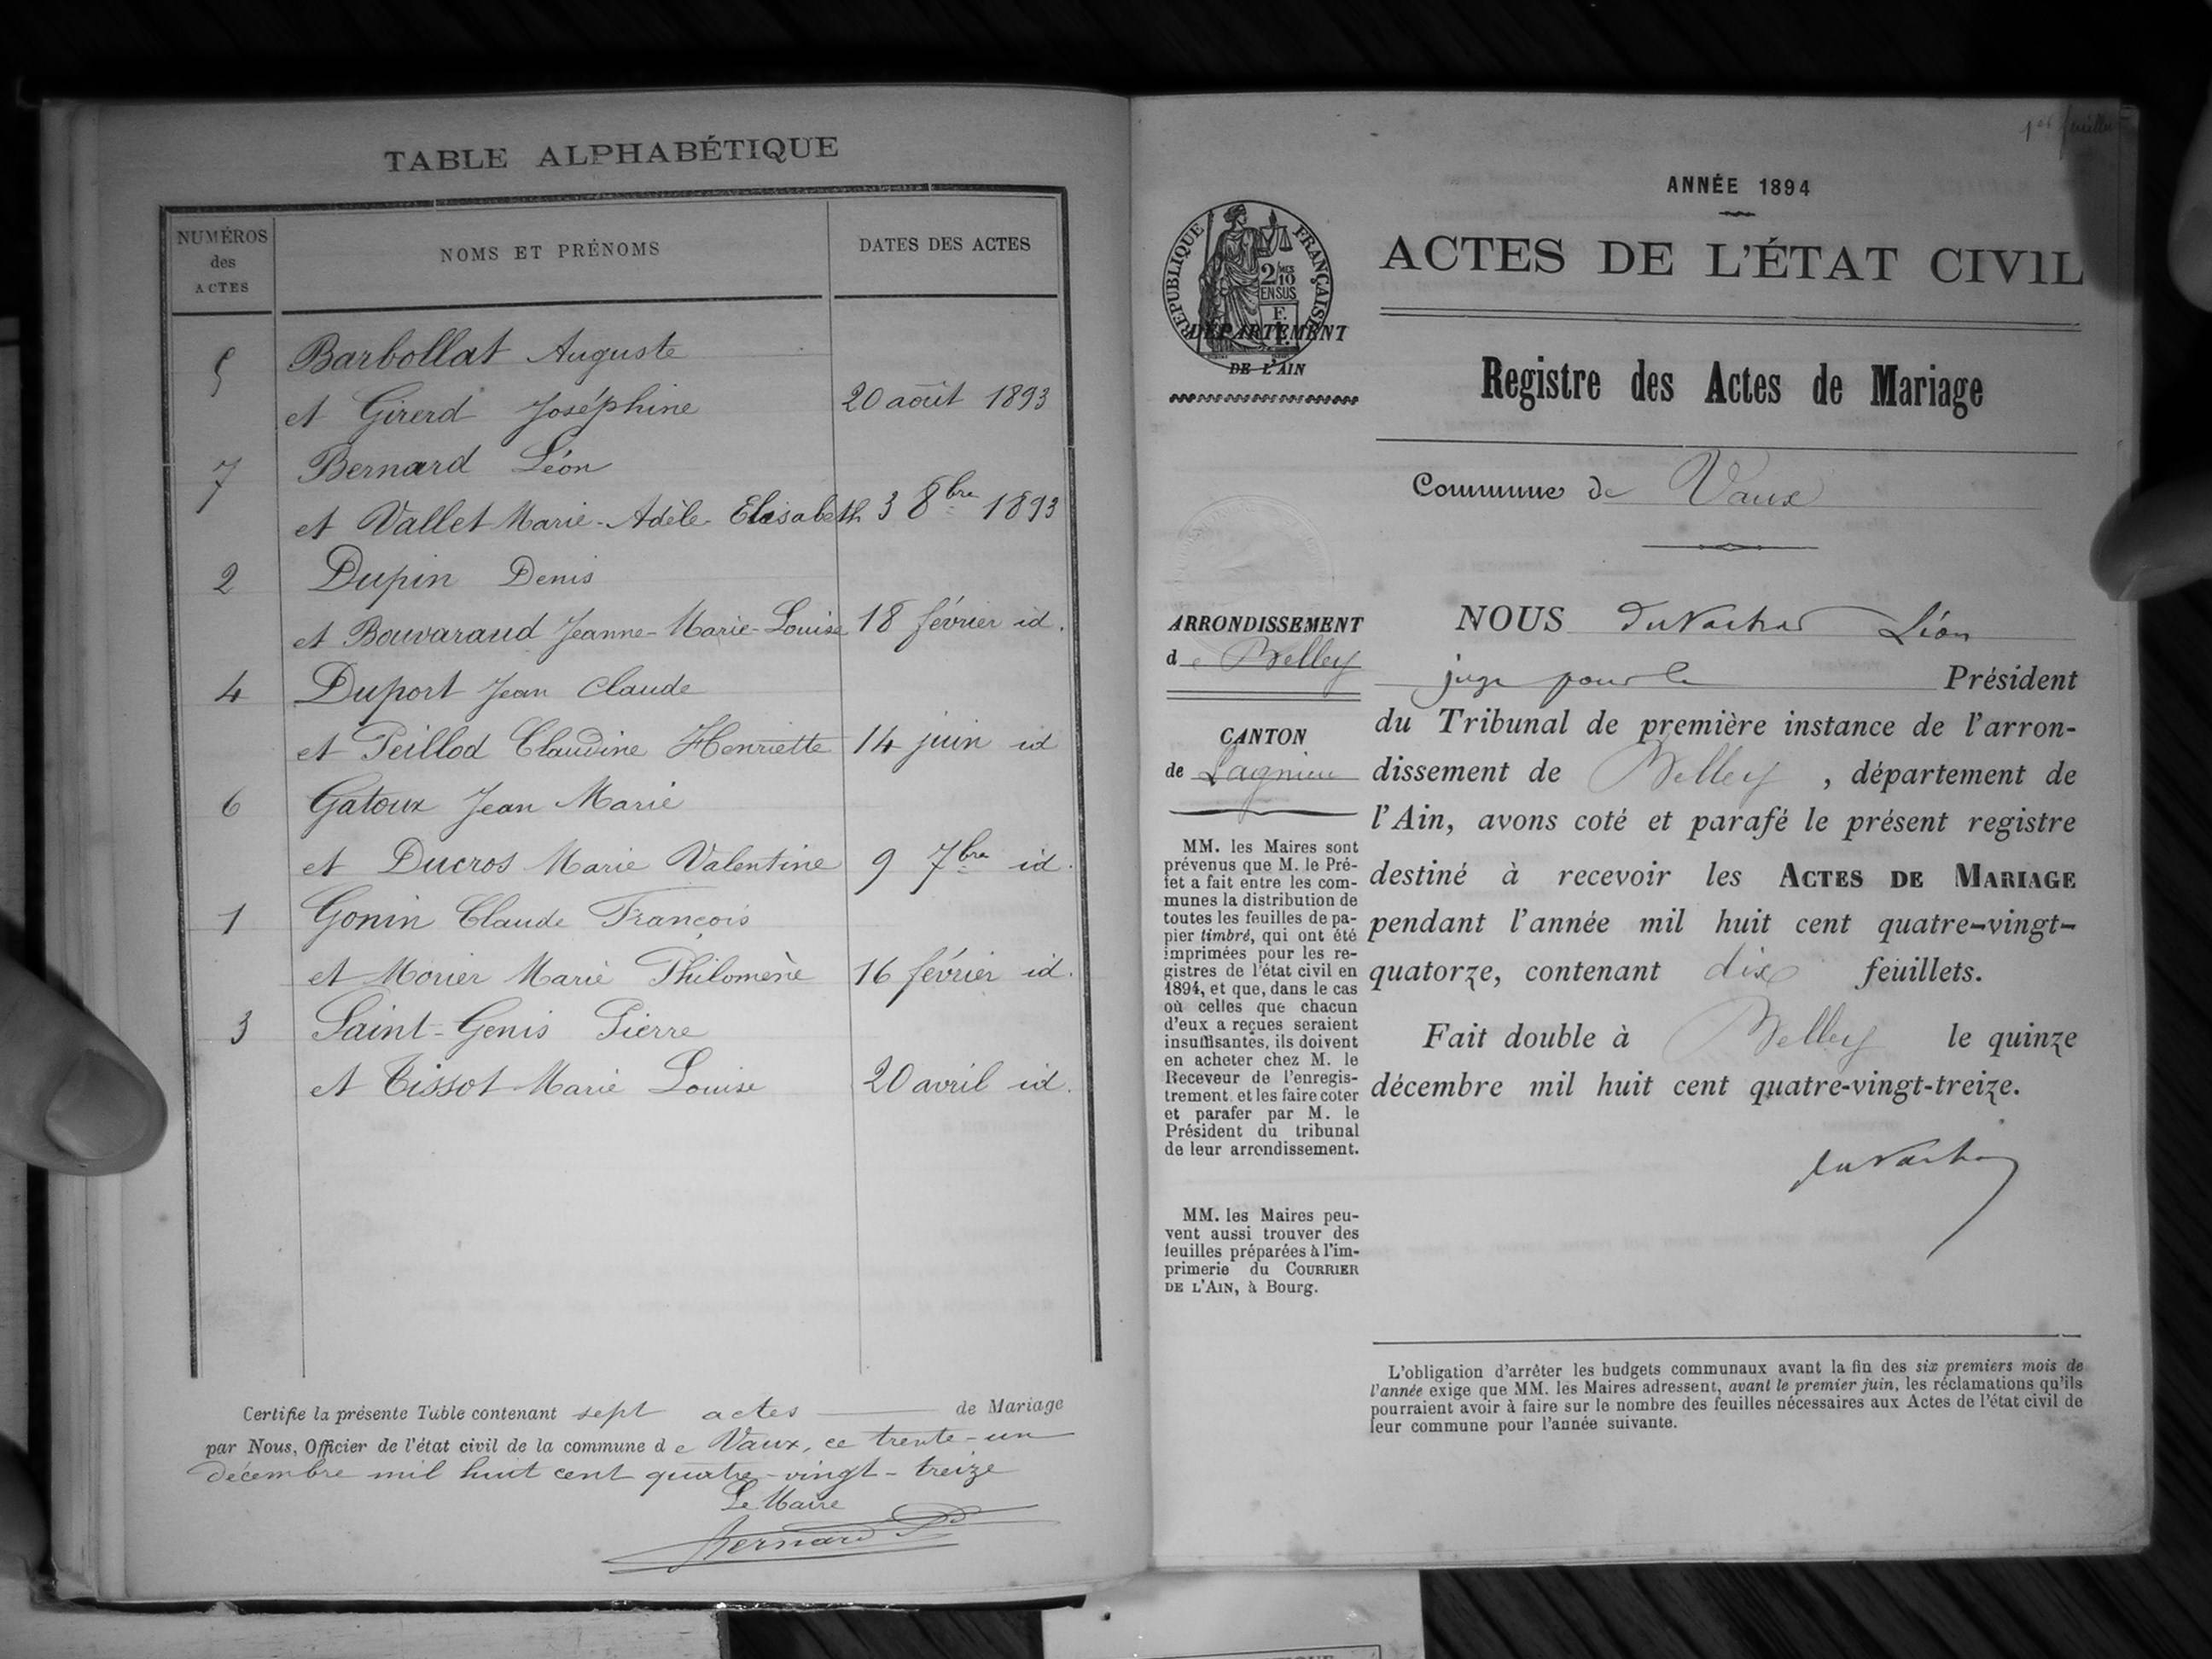 TABLE ALPHABÉTIQUE
NUMÉROS
des
ACTES
NOMS ET PRÉNOMS
DATES DES ACTES
5 Barbollat Auguste
et Girerd Joséphine 20 août 1893
7 Bernard Léon
et Vallet Marie-Adèle-Elisabeth 3 8bre 1893
2 Dupin Denis
et Bouvaraud Jeanne-Marie-Louise 18 février id.
4 Duport Jean Claude
et Peillod Claudine Henriette 14 juin id
6 Gatoux Jean Marie
et Ducros Marie Valentine 9 7bre id.
1 Gonin Claude François
et Morier Marie Philomène 16 février id.
3 Saint-Genis Pierre
et Tissot Marie Louise 20 avril id.
Certifie la présente Table contenant sept actes de Mariage
par Nous, Officier de l'état civil de la commune de Vaux, ce trente-un
décembre mil huit cent quatre-vingt-treize
Le Maire
Bernard
1er feuillet
ANNÉE 1894
ACTES DE L'ÉTAT CIVIL
RÉPUBLIQUE FRANÇAISE
2/10MES
EN SUS
DÉPARTEMENT
DE L'AIN
Registre des Actes de Mariage
Commune de Vaux
ARRONDISSEMENT
de Belley
CANTON
de Lagnieu
MM. les Maires sont
prévenus que M. le Pré-
fet a fait entre les com-
munes la distribution de
toutes les feuilles de pa-
pier timbré, qui ont été
imprimées pour les re-
gistres de l'état civil en
1894, et que, dans le cas
où celles que chacun
d'eux a reçues seraient
insuffisantes, ils doivent
en acheter chez M. le
Receveur de l'enregis-
trement et les faire coter
et parafer par M. le
Président du tribunal
de leur arrondissement.
MM. les Maires peu-
vent aussi trouver des
feuilles préparées à l'im-
primerie du COURRIER
DE L'AIN, à Bourg.
NOUS Léon
juge pour le Président
du Tribunal de première instance de l'arron-
dissement de Belley, département de
l'Ain, avons coté et parafé le présent registre
destiné à recevoir les ACTES DE MARIAGE
pendant l'année mil huit cent quatre-vingt-
quatorze, contenant dix feuillets.
Fait double à Belley le quinze
décembre mil huit cent quatre-vingt-treize.
L'obligation d'arrêter les budgets communaux avant la fin des six premiers mois de
l'année exige que MM. les Maires adressent, avant le premier juin, les réclamations qu'ils
pourraient avoir à faire sur le nombre des feuilles nécessaires aux Actes de l'état civil de
leur commune pour l'année suivante.